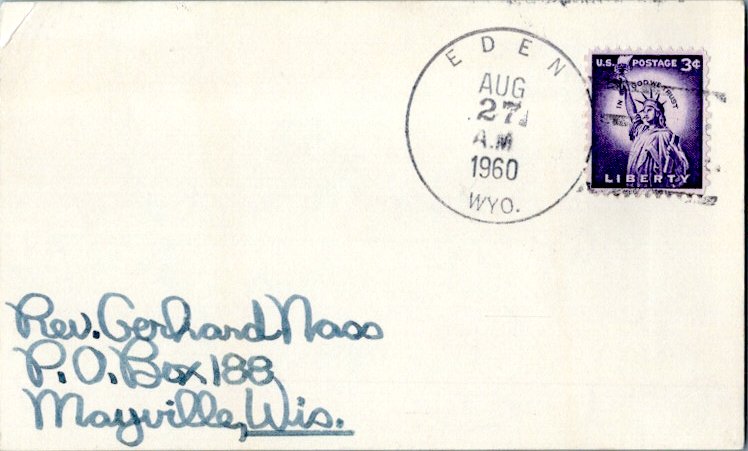 EDEN
AUG
27
A.M
1960
WYO.
U.S. POSTAGE 3¢
IN GOD WE TRUST
LIBERTY
Rev. Gerhard Nass
P.O. Box 188
Mayville, Wis.